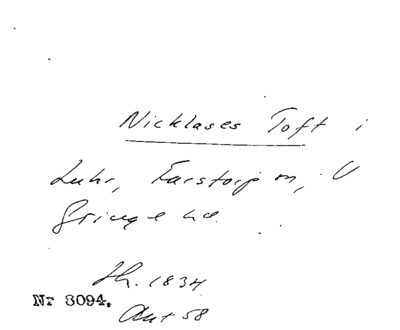 Nicklases Toft i
Luhr, Farstorp sn, V
Göinge hd.
Jh. 1834
Nr 3094.
Akt 58